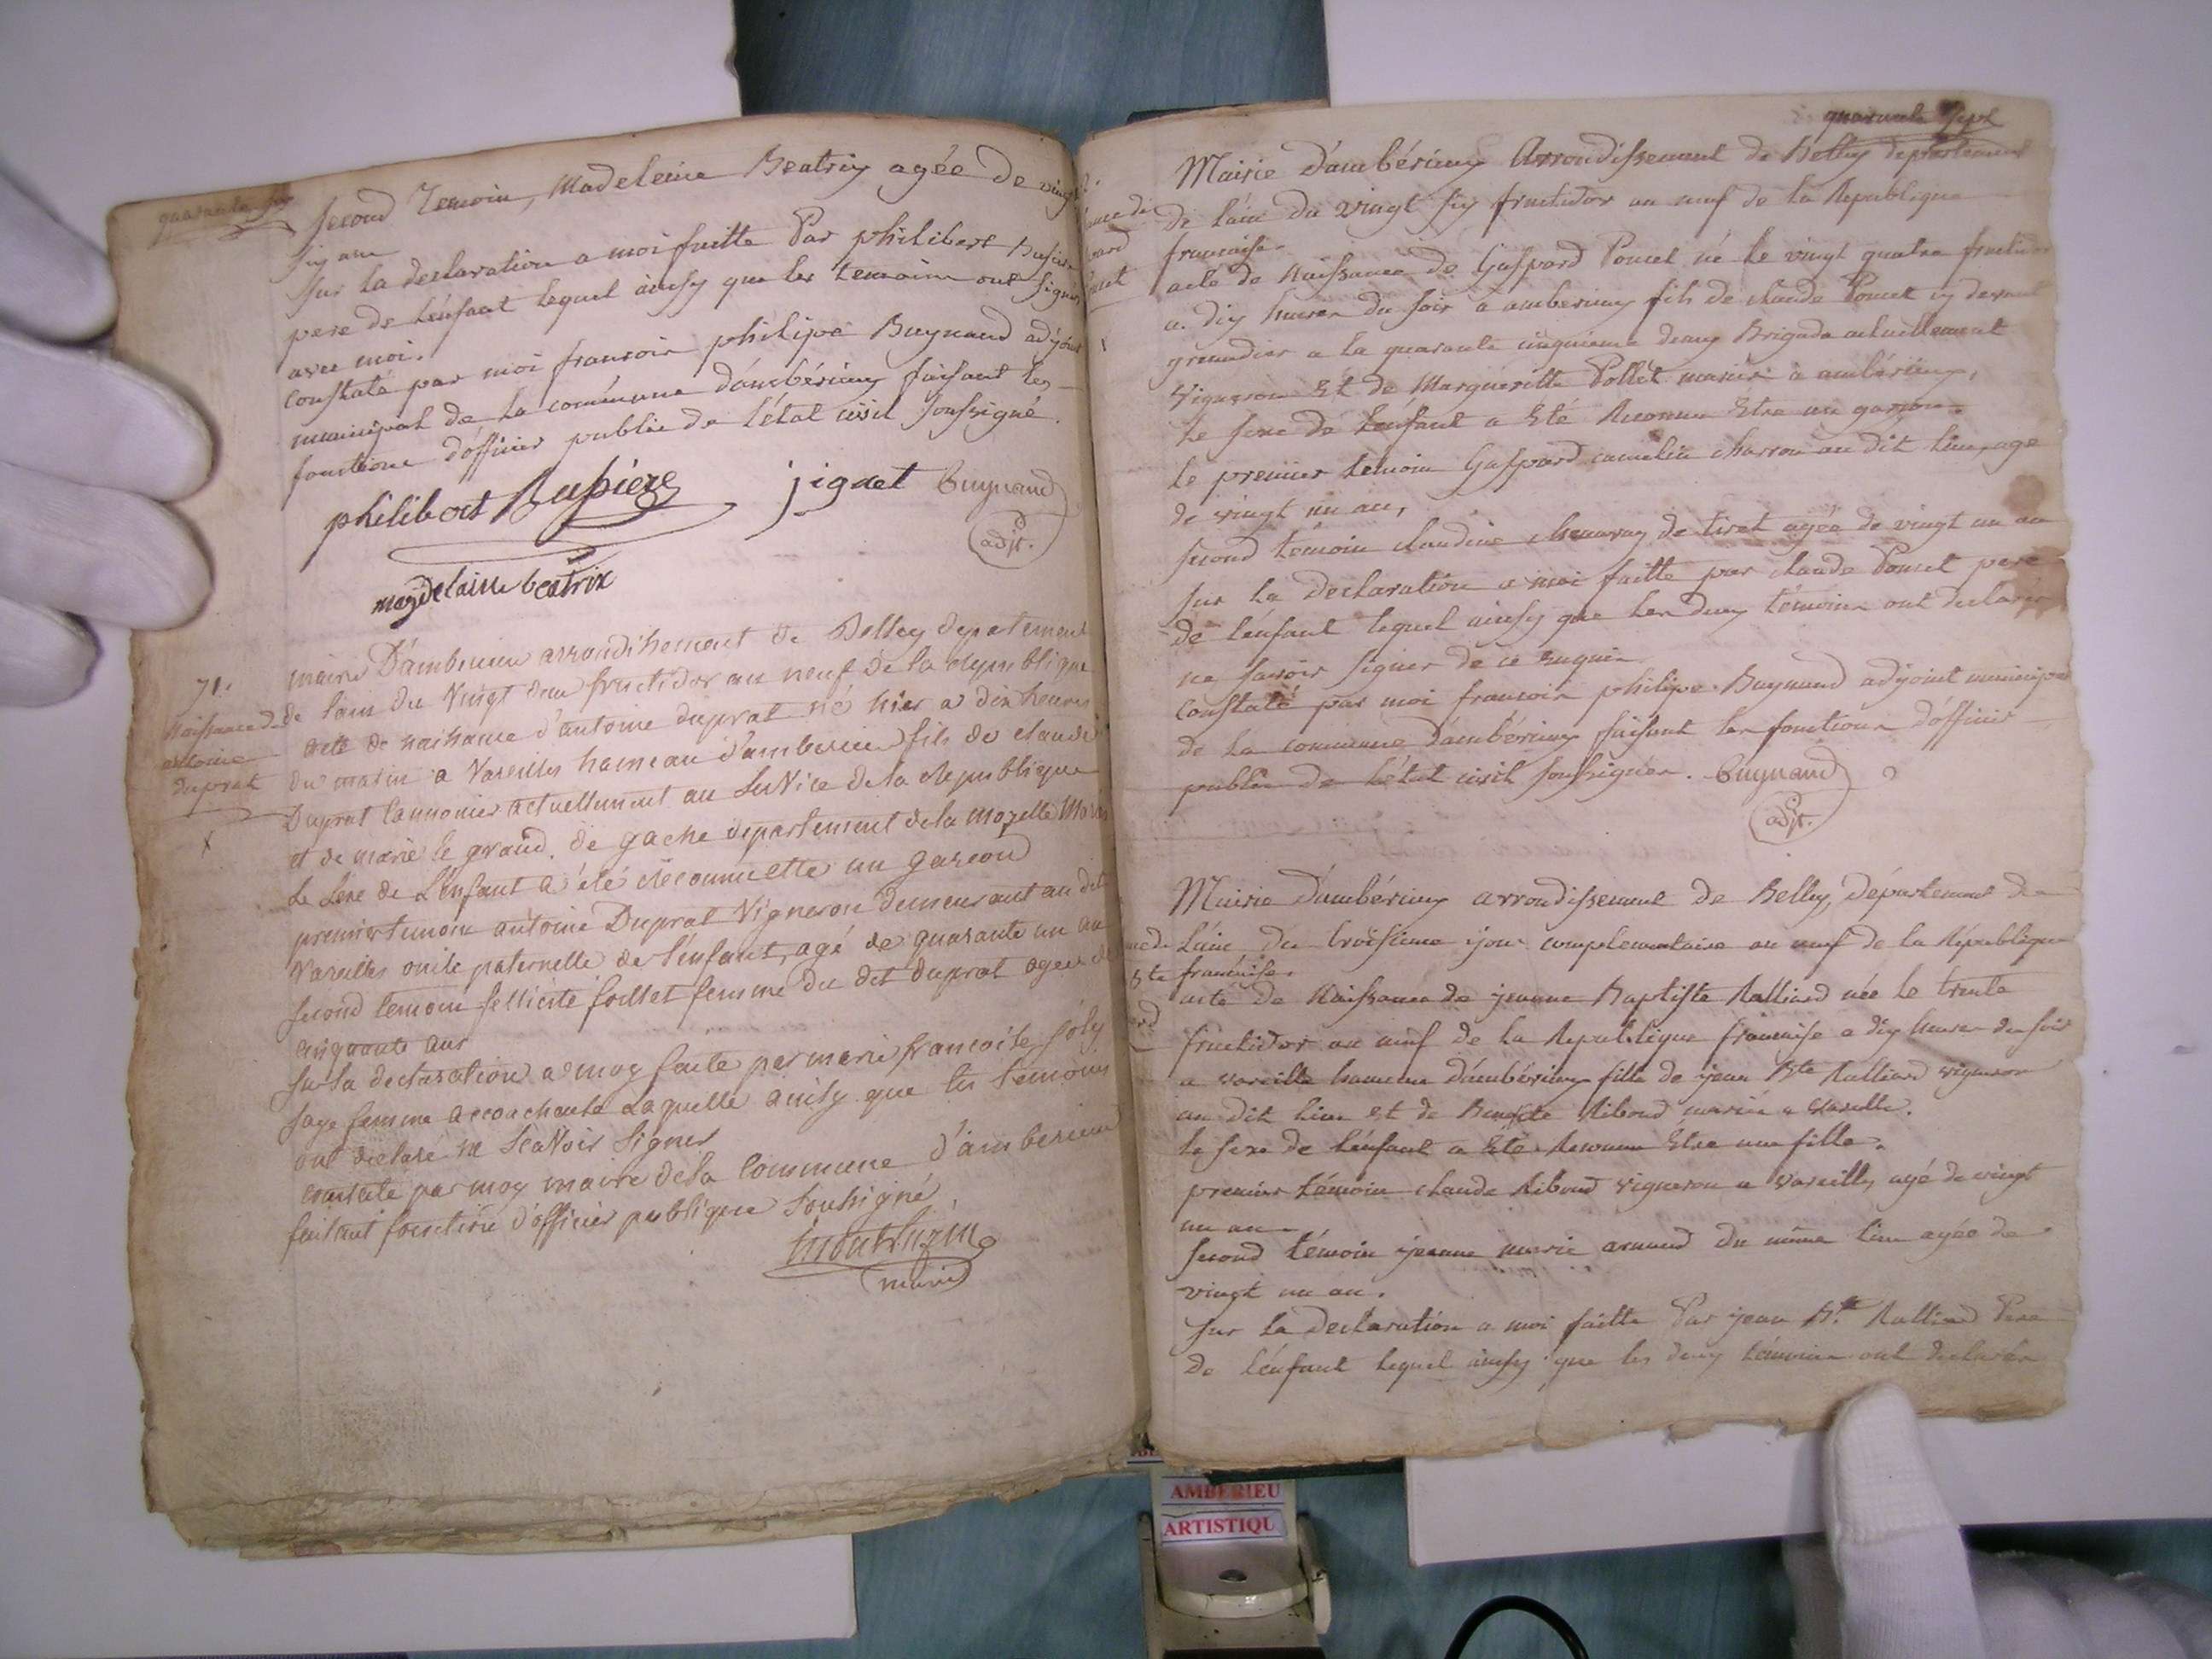 quarante six
second Temoin, Madeleine Beatrix agée de vingt
six ans
sur la declaration a moi faitte Par philibert Rufiere
pere de l'énfant lequel ainsy que les temoins ont signés
avec moi.
constaté par moi francois philipe Buynand adjoint
municipal de la commune d'ambérieux faisant les
fonctions d'officier public de l'état civil soussigné.
philibert Rufiere jignet Buynand
adjt.
magdelaine beatrix
71.
Naissance de
antoine
duprat
mairie D'amberieu arrondissement de Belley departement
de lain du Vingt deux fructidor an neuf de la republique
acte de naissance d'antoine duprat né hier a dix heures
du matin a Vareilles hameau d'amberieu fils de claude
Duprat Cannonier actuellement au service de la republique
et de marie le grand. de gache departement de la mozelle
Le sexe de L'enfant a été reconnu etre un garcon
premier temoin antoine Duprat Vigneron demeurant au dit
Vareilles oncle paternelle de l'enfant, agé de quarante un an
second temoin fellicité follet femme du dit duprat agée de
cinquante ans
sur la declaration a moy faite par marie francoise joly
sage femme accouchante laquelle ainsy que les temoins
ont declaré ne scavoir signer
constaté par moy maire de la Commune d'amberieu
faisant fonction d'officier publique soussigné.
montluzin
maire
quarante sept
Mairie d'ambérieux Arrondissement de Belley departement
de l'ain du vingt six fructidor an neuf de la Republique
francaise.
acte de Naissance de Gaspard Poncet né le vingt quatre fructidor
a dix heures du soir a amberieux fils de claude Poncet cy devant
grenadier a la quarante cinquieme demy Brigade actuellement
Vigneron Et de Margueritte Pollet mariés à ambérieux,
le sexe de l'enfant a Eté Reconnu Etre un garçon.
le premier temoin Gaspard camelin charron au dit lieu, age
de vingt un an,
second temoin claudine de tiret agée de vingt un an
sur la declaration a moi faitte par claude Poncet pere
de l'énfant lequel ainsy que les deux témoins ont declarés
ne savoir signer de ce Enquis
constaté par moi francois philipe Buynand adjoint municipal
de la commune d'ambérieux faisant les fonctions d'officier
public de l'état civil soussigner. Buynand
adjt.
Mairie d'ambérieux arrondissement de Belley, Département de
L'ain du troisieme jour complementaire an neuf de la République
francaise.
acte de Naissance de jeanne Baptiste Ralliard née le trente
fructidor an neuf de la Republique francaise a dix heures du soir
a vareille hameau d'ambérieux fille de jean Bte Ralliard vigneron
au dit lieu et de Benoite Riboud mariés a vareille.
le sexe de l'énfant a Eté Reconnu Etre une fille.
premier témoin claude Riboud vigneron a vareille, agé de vingt
un an
second témoin jeanne marie arnaud du même lieu agée de
vingt un an.
sur la declaration a moi faitte Par jean Bte Ralliard Pere
de l'énfant lequel ainsy que les deux témoins ont declarés
AMBERIEU
ARTISTIQU